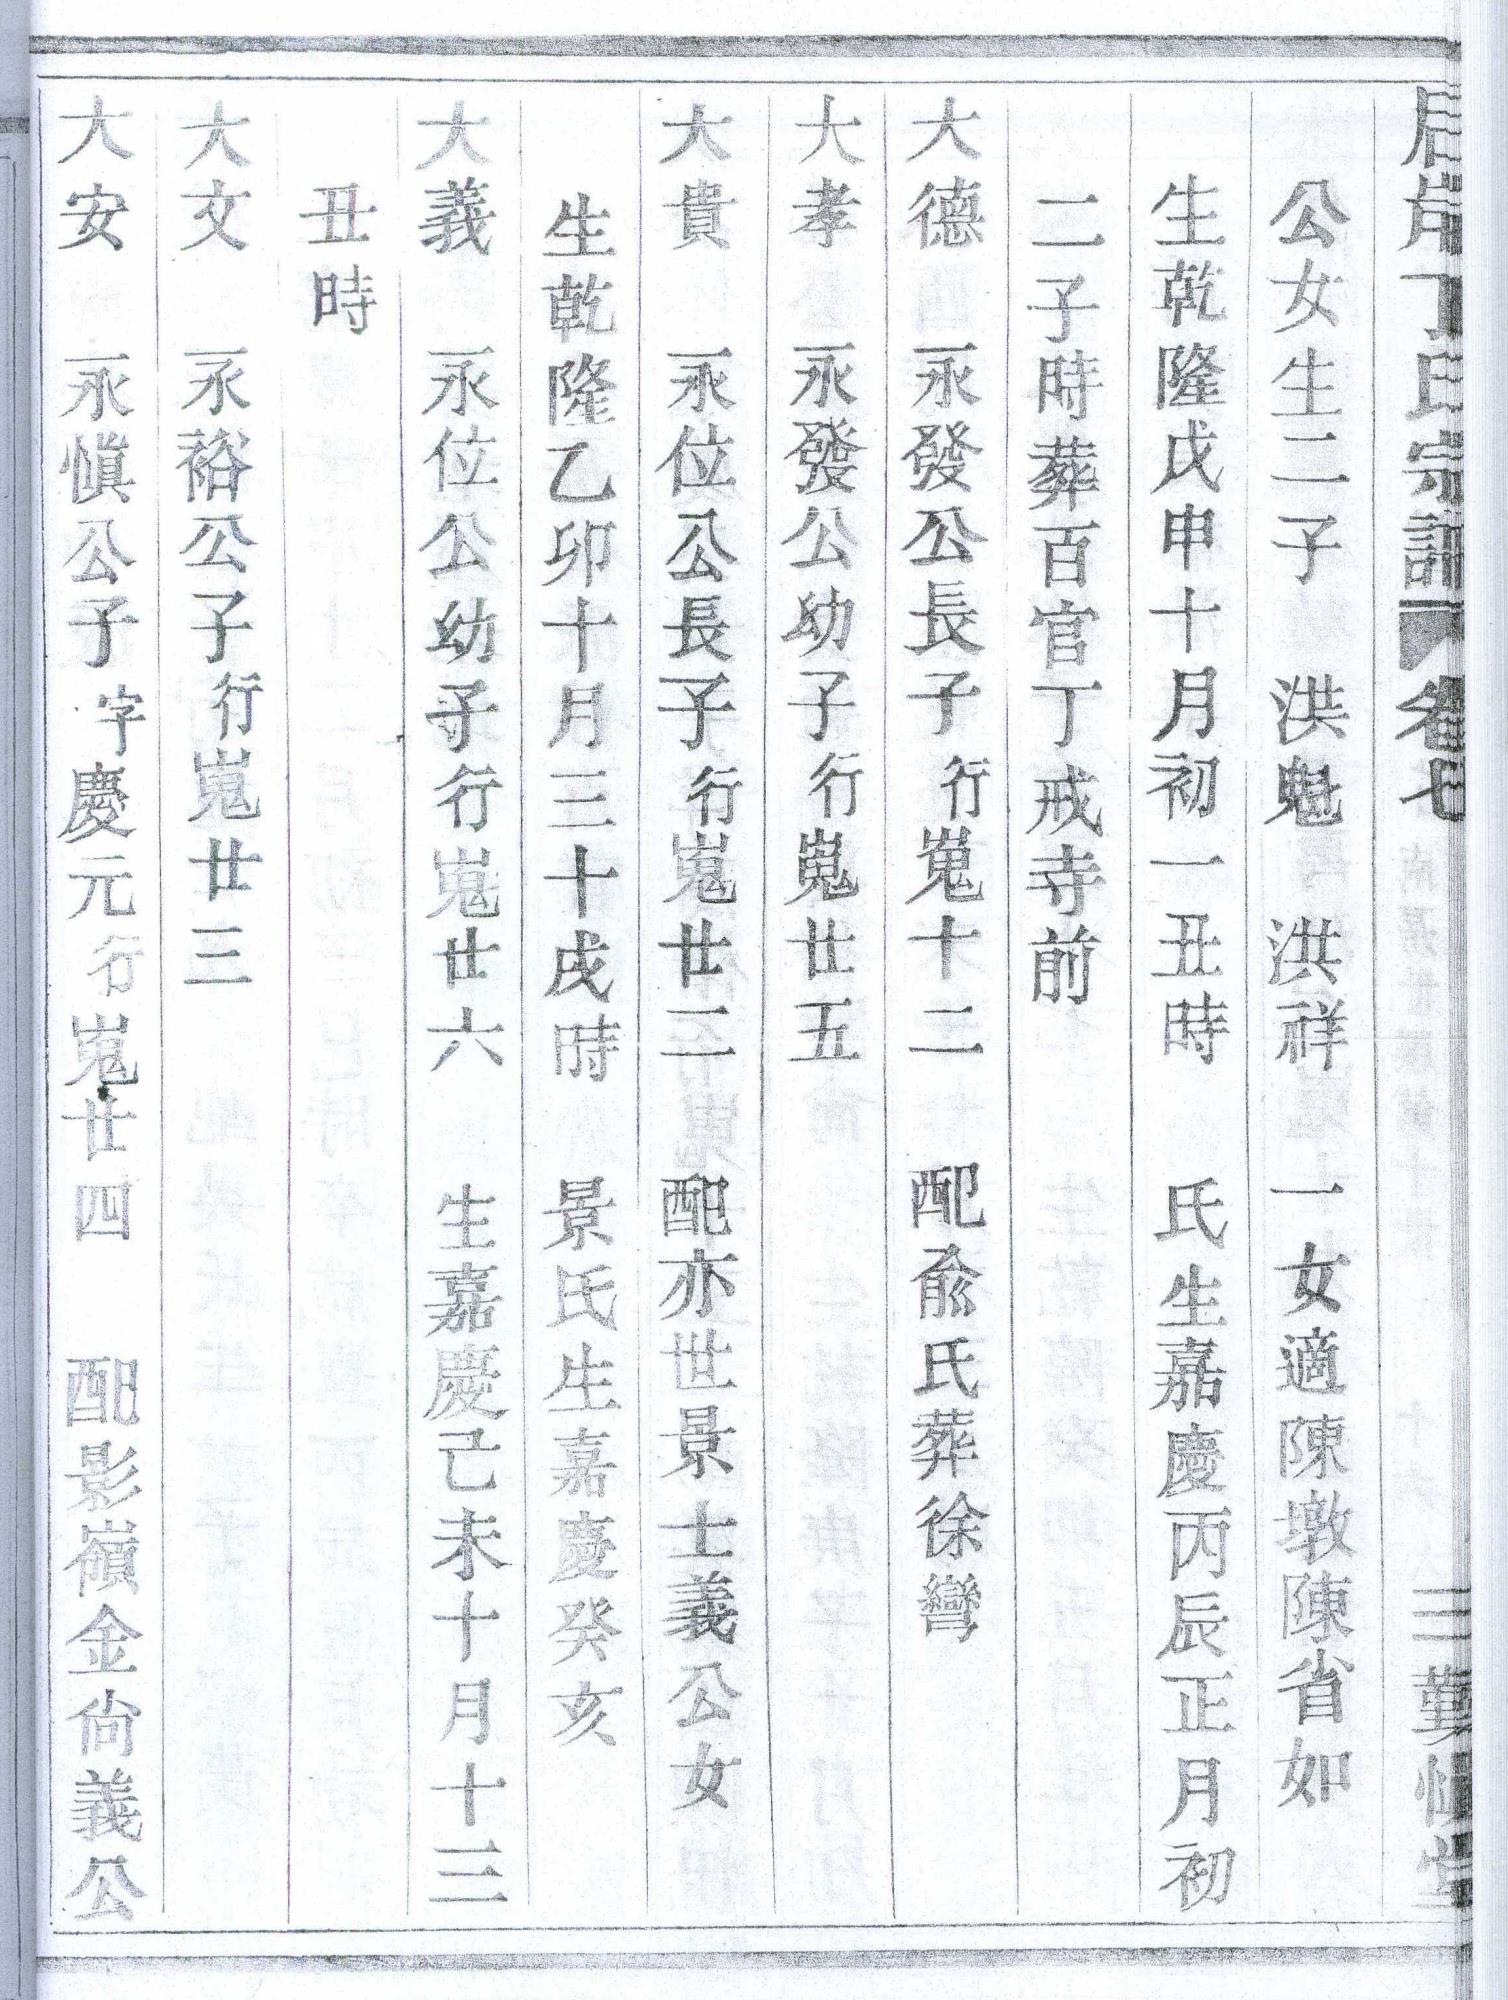 后岸丁氏宗譜 卷七 三 勤慎堂
公女生二子 洪魁 洪祥 一女適陳墩陳省如
生乾隆戊申十月初一丑時 氏生嘉慶丙辰正月初
二子時葬百官丁戒寺前
大德 永發公長子行嵬十二 配俞氏葬徐彎
大孝 永發公幼子行嵬廿五
大貴 永位公長子行嵬廿二 配亦世景士義公女
生乾隆乙卯十月三十戌時 景氏生嘉慶癸亥
大義 永位公幼子行嵬廿六 生嘉慶己未十月十三
丑時
大文 永裕公子行嵬廿三
大安 永慎公子字慶元行嵬廿四 配影嶺金尙義公